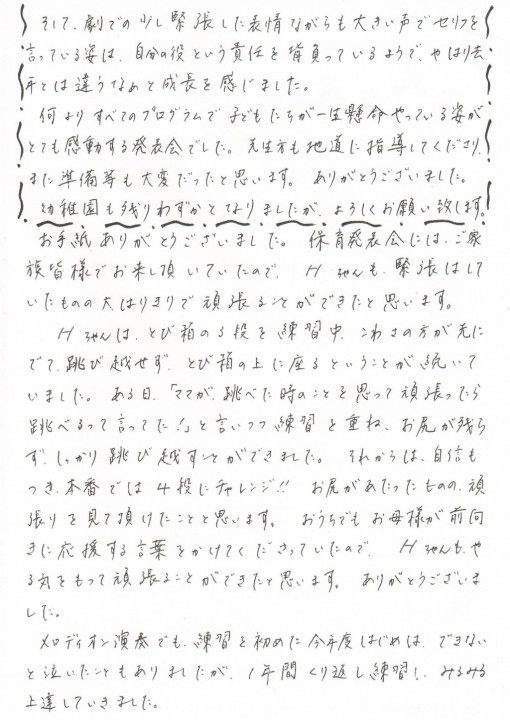 そして、劇での少し緊張した表情ながらも大きい声でセリフを
言っている姿は、自分の役という責任を背負っているようで、やはり去
年とは違うなぁと成長を感じました。
何よりすべてのプログラムで子どもたちが一生懸命やっている姿が
とても感動する発表会でした。先生方も地道に指導してくださり、
また準備等も大変だったと思います。ありがとうございました。
幼稚園も残りわずかとなりましたが、よろしくお願い致します。
お手紙ありがとうございました。保育発表会には、ご家
族皆様でお来し頂いていたので、Hちゃんも、緊張はして
いたものの大はりきりで頑張ることができたと思います。
Hちゃんは、とび箱の3段を練習中、こわさの方が先に
でて、跳び越せず、とび箱の上に座るということが続いて
いました。ある日、「ママが、跳べた時のことを思って頑張ったら
跳べるって言ってた!」と言いつつ練習を重ね、お尻が残ら
ず、しっかり跳び越すことができました。それからは、自信も
つき、本番では4段にチャレンジ!!お尻があたったものの、頑
張りを見て頂けたことと思います。おうちでもお母様が前向
きに応援する言葉をかけてくださっていたので、Hちゃんも、や
る気をもって頑張ることができたと思います。ありがとうございま
した。
メロディオン演奏でも、練習を初めた今年度はじめは、できない
と泣いたこともありましたが、1年間くり返し練習し、みるみる
上達していきました。